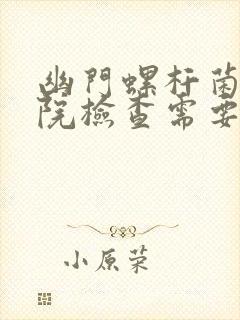 幽門螺杆菌
院檢查需要
小原荣